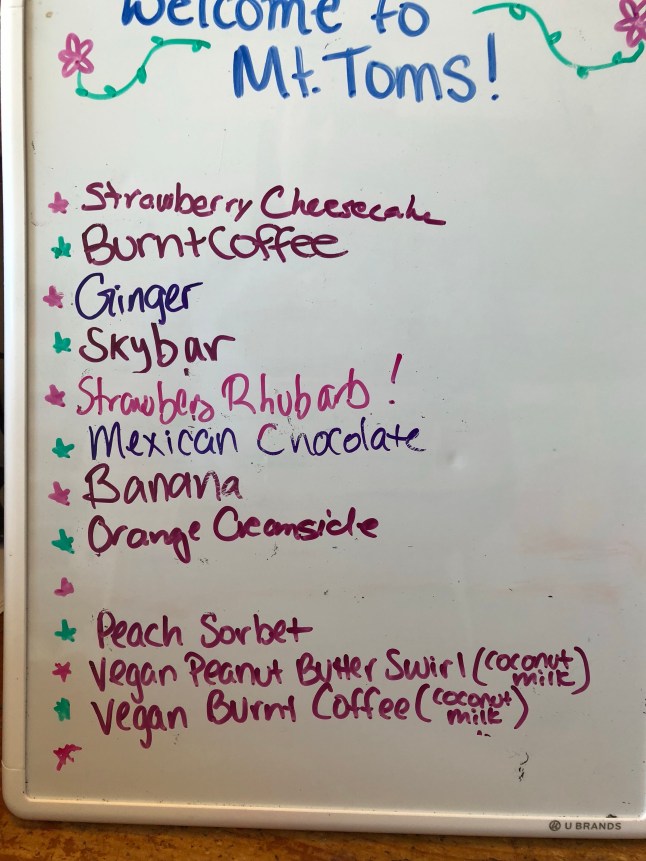 Welcome to
Mt. Toms!
Strawberry Cheesecake
Burnt Coffee
Ginger
Skybar
Strawbery Rhubarb!
Mexican Chocolate
Banana
Orange Creamsicle
Peach Sorbet
Vegan Peanut Butter Swirl (coconut milk)
Vegan Burnt Coffee (coconut milk)
U BRANDS